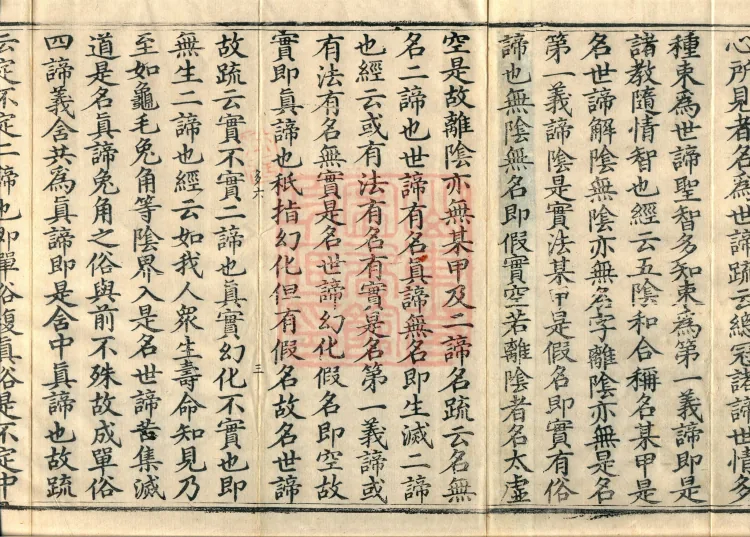 心所見者名為世諦疏云總冠諸諦世情多
種束為世諦聖智多知束為第一義諦即是
諸教隨情智也經云五陰和合稱名某甲是
名世諦解陰無陰亦無名字離陰亦無是名
第一義諦陰是實法某甲是假名即實有俗
諦也無陰無名即假實空若離陰者名太虛
空是故離陰亦無某甲及二諦名疏云名無
名二諦也世諦有名真諦無名即生滅二諦
也經云或有法有名有實是名第一義諦或
有法有名無實是名世諦幻化假名即空故
實即真諦也秖指幻化但有假名故名世諦
多六
三
故疏云實不實二諦也真實幻化不實也即
無生二諦也經云如我人眾生壽命知見乃
至如龜毛兔角等陰界入是名世諦苦集滅
道是名真諦兔角之俗與前不殊故成單俗
四諦義含共為真諦即是含中真諦也故疏
云定不定二諦也即單俗複真俗是不定中